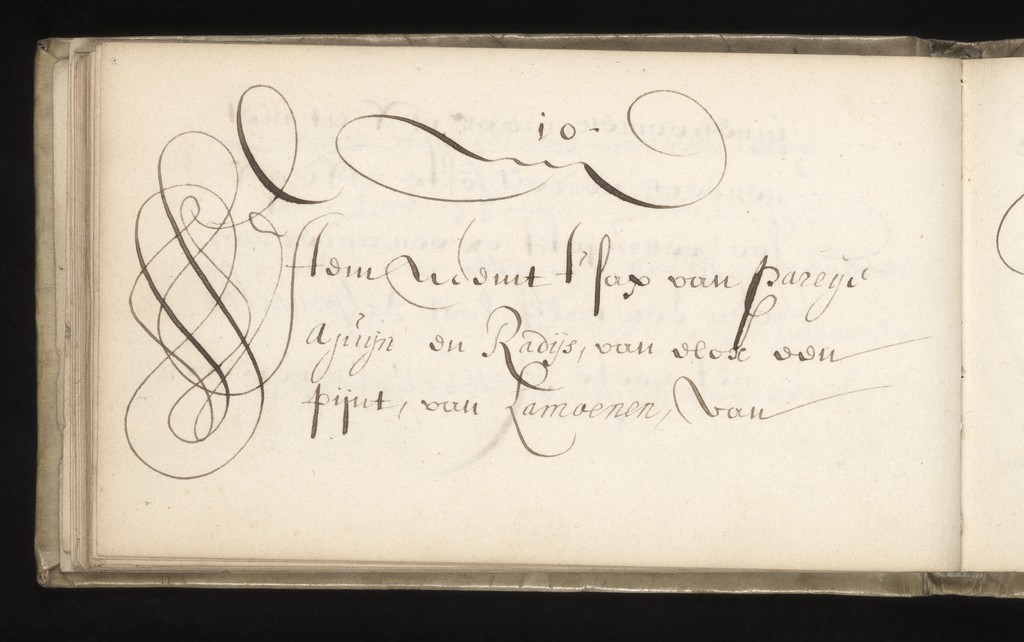 10.
Item Neemt t'sap van pareye
Ajuijn en Radijs, van elck een
pijnt, van Lamoenen, van